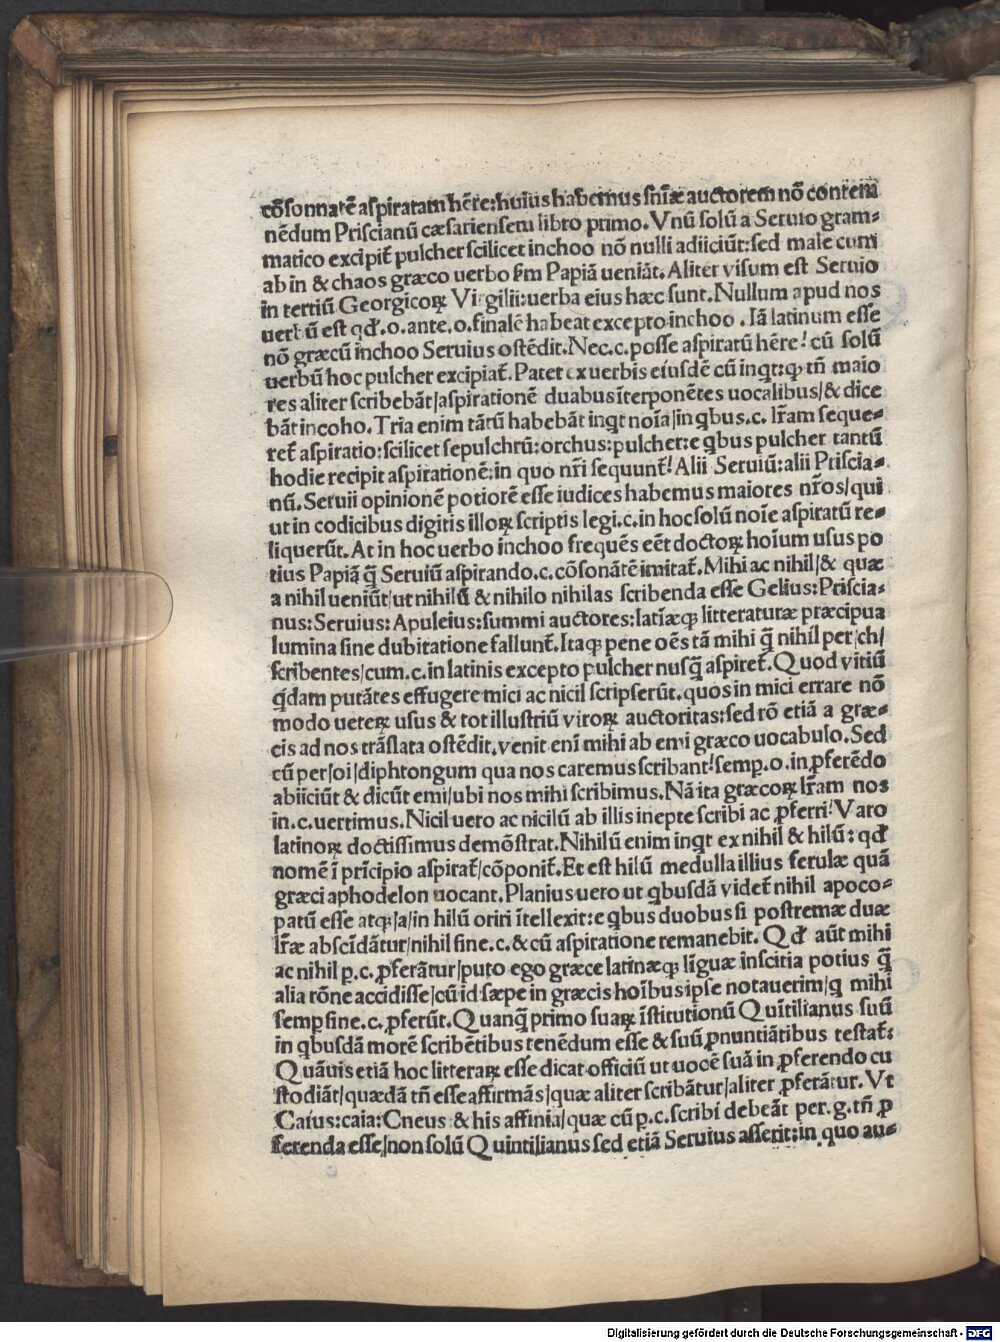 cōſonnatē aſpiratam hr̄e: huius habemus ſniæ auctorem nō contem
nēdum Priſcianū cæſarienſem libro primo. Vnū ſolū a Seruio gram⸗
matico excipit̃ pulcher ſcilicet inchoo nō nulli adiiciūt: ſed male cum
ab in & chaos græco uerbo ẜm Papiā ueniāt. Aliter viſum eſt Seruio
in tertiū Georgicoꝝ Virgilii: uerba eius hæc ſunt. Nullum apud nos
uerbū eſt qđ .o. ante .o. finalē habeat excepto inchoo . Iā latinum eſſe
nō græcū inchoo Seruius oſtēdit. Nec .c. poſſe aſpiratū hēre! cū ſolū
uerbū hoc pulcher excipiat̃. Patet ex uerbis eiuſdē cū inqt: ꝙ tñ maio
res aliter ſcribebāt/aſpirationē duabus īterponētes uocalibus/& dice
bāt incoho. Tria enim tātū habebāt inqt noīa/in qbus .c. lr̄am ſeque⸗
ret̃ aſpiratio: ſcilicet ſepulchrū: orchus: pulcher: e qbus pulcher tantū
hodie recipit aſpirationē: in quo nr̄i ſequunt̃! Alii Seruiū: alii Priſcia⸗
nū. Seruii opinionē potiorē eſſe iudices habemus maiores nr̄os/qui
ut in codicibus digitis illoꝝ ſcriptis legi .c. in hoc ſolū noīe aſpiratū re⸗
liquerūt. At in hoc uerbo inchoo frequēs eēt doctoꝝ hoīum uſus po
tius Papiā q̄ Seruiū aſpirando .c. cōſonātē imitat̃. Mihi ac nihil/& quæ
a nihil ueniūt/ut nihilū & nihilo nihilas ſcribenda eſſe Gelius: Priſcia⸗
nus: Seruius: Apuleius: ſummi auctores: latīæqꝫ litteraturæ præcipua
lumina ſine dubitatione fallunt̃. Itaqꝫ pene oēs tā mihi q̄ nihil per/ch/
ſcribentes/cum .c. in latinis excepto pulcher nuſq̄ aſpiret̃. Quod vitiū
qdam putātes effugere mici ac nicil ſcripſerūt. quos in mici errare nō
modo ueteꝝ uſus & tot illuſtriū viroꝝ auctoritas: ſed rō etiā a græ⸗
cis ad nos trāſlata oſtēdit. venit enī mihi ab emi græco uocabulo. Sed
cū per/oi/diphtongum qua nos caremus ſcribant! ſemp̱ .o. in ꝓferēdo
abiiciūt & dicūt emi/ubi nos mihi ſcribimus. Nā ita græcoꝝ lr̄am nos
in .c. uertimus. Nicil uero ac nicilū ab illis inepte ſcribi ac ꝓferri! Varo
latinoꝝ doctiſſimus demōſtrat. Nihilū enim inqt ex nihil & hilū: qđ
nomē ī prīcipio aſpirat̃/cōponit̃. Et eſt hilū medulla illius ferulæ quā
græci aphodelon uocant. Planius uero ut qbuſdā videt̃ nihil apoco⸗
patū eſſe atqꝫ/a/in hilū oriri ītellexit: e qbus duobus ſi poſtremæ duæ
lr̄æ abſcīdātur/nihil ſine .c. & cū aſpiratione remanebit. Qđ aūt mihi
ac nihil p̱ .c. ꝓferātur/puto ego græce latinæqꝫ līguæ inſcitia potius q̄
alia rōne accidiſſe/cū id ſæpe in græcis hoībus ipſe notauerim/q mihi
ſemp̱ ſine .c. ꝓferūt. Quanq̄ primo ſuaꝝ īſtitutionū Quītilianus ſuū
in qbuſdā morē ſcribētibus tenēdum eſſe & ſuū ꝓnuntiātibus teſtat̃:
Quāuis etiā hoc litteraꝝ eſſe dicat officiū ut uocē ſuā in ꝓferendo cu
ſtodiāt/quædā tñ eſſe affirmās/quæ aliter ſcribātur/aliter ꝓferātur. Vt
Caīus: caia: Cneus & his affinia/quæ cū p̱ .c. ſcribi debeāt per .g. tñ ꝓ
ferenda eſſe/non ſolū Quintilianus ſed etiā Seruius aſſerit: in quo au⸗
Digitalisierung gefördert durch die Deutsche Forschungsgemeinschaft - DFG